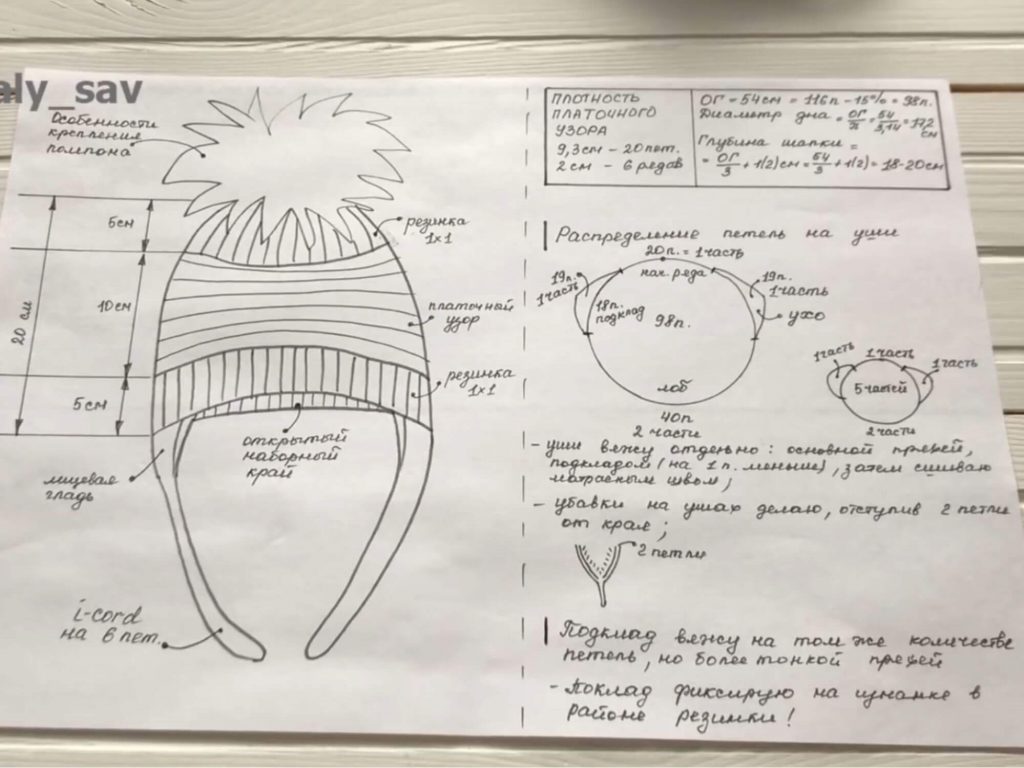 aly_sav
Особенности
крепления
помпона
5см
10см
5см
20 см
резинка
1х1
платочный
узор
резинка
1х1
открытый
наборный
край
лицевая
гладь
i-cord
на 6 пет.
ПЛОТНОСТЬ
ПЛАТОЧНОГО
УЗОРА
9,3см – 20пет.
2 см – 6 рядов
ОГ – 54см = 116п – 15% = 98п.
Диаметр дна = ОГ/π = 54/3,14 = 17,2 см
Глубина шапки =
= ОГ/3 + 1(2)см = 54/3 + 1(2) = 18-20см
Распределение петель на уши
20п. = 1 часть
нач. ряда
19п.
1 часть
18п.
подклад
98п.
19п.
1 часть
ухо
лоб
40п
2 части
1 часть
1 часть
1 часть
5 частей
2 части
- уши вяжу отдельно: основной пряжей,
подкладом (на 1 п. меньше), затем сшиваю
матрасным швом;
- убавки на ушах делаю, отступив 2 петли
от края;
2 петли
Подклад вяжу на том же количестве
петель, но более тонкой пряжей
- Поклад фиксирую на изнанке в
районе резинки!